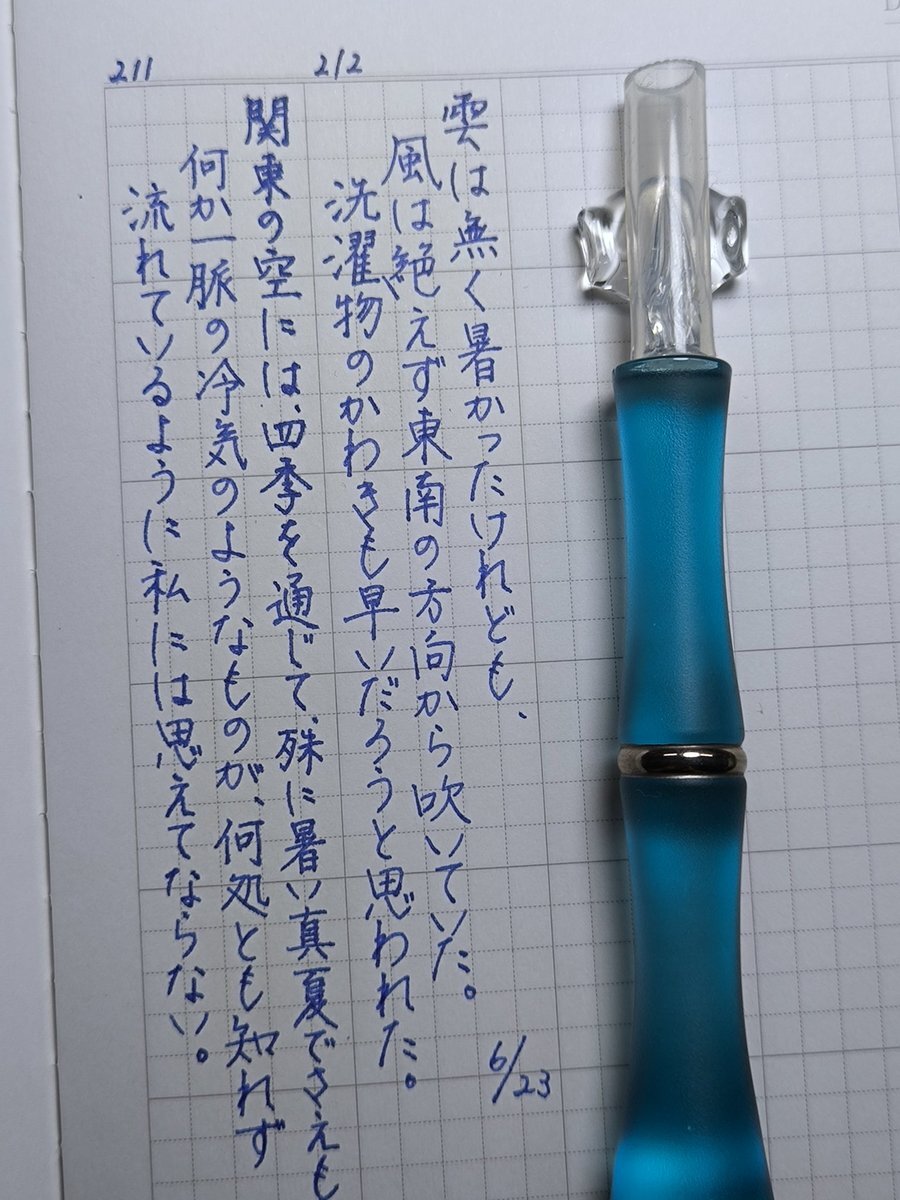 212
雲は無く暑かったけれども、
風は絶えず東南の方向から吹いていた。
洗濯物のかわきも早いだろうと思われた。
211
関東の空には、四季を通じて、殊に暑い真夏でさえも
何か一脈の冷気のようなものが、何処とも知れず
流れているように私には思えてならない。
6/23